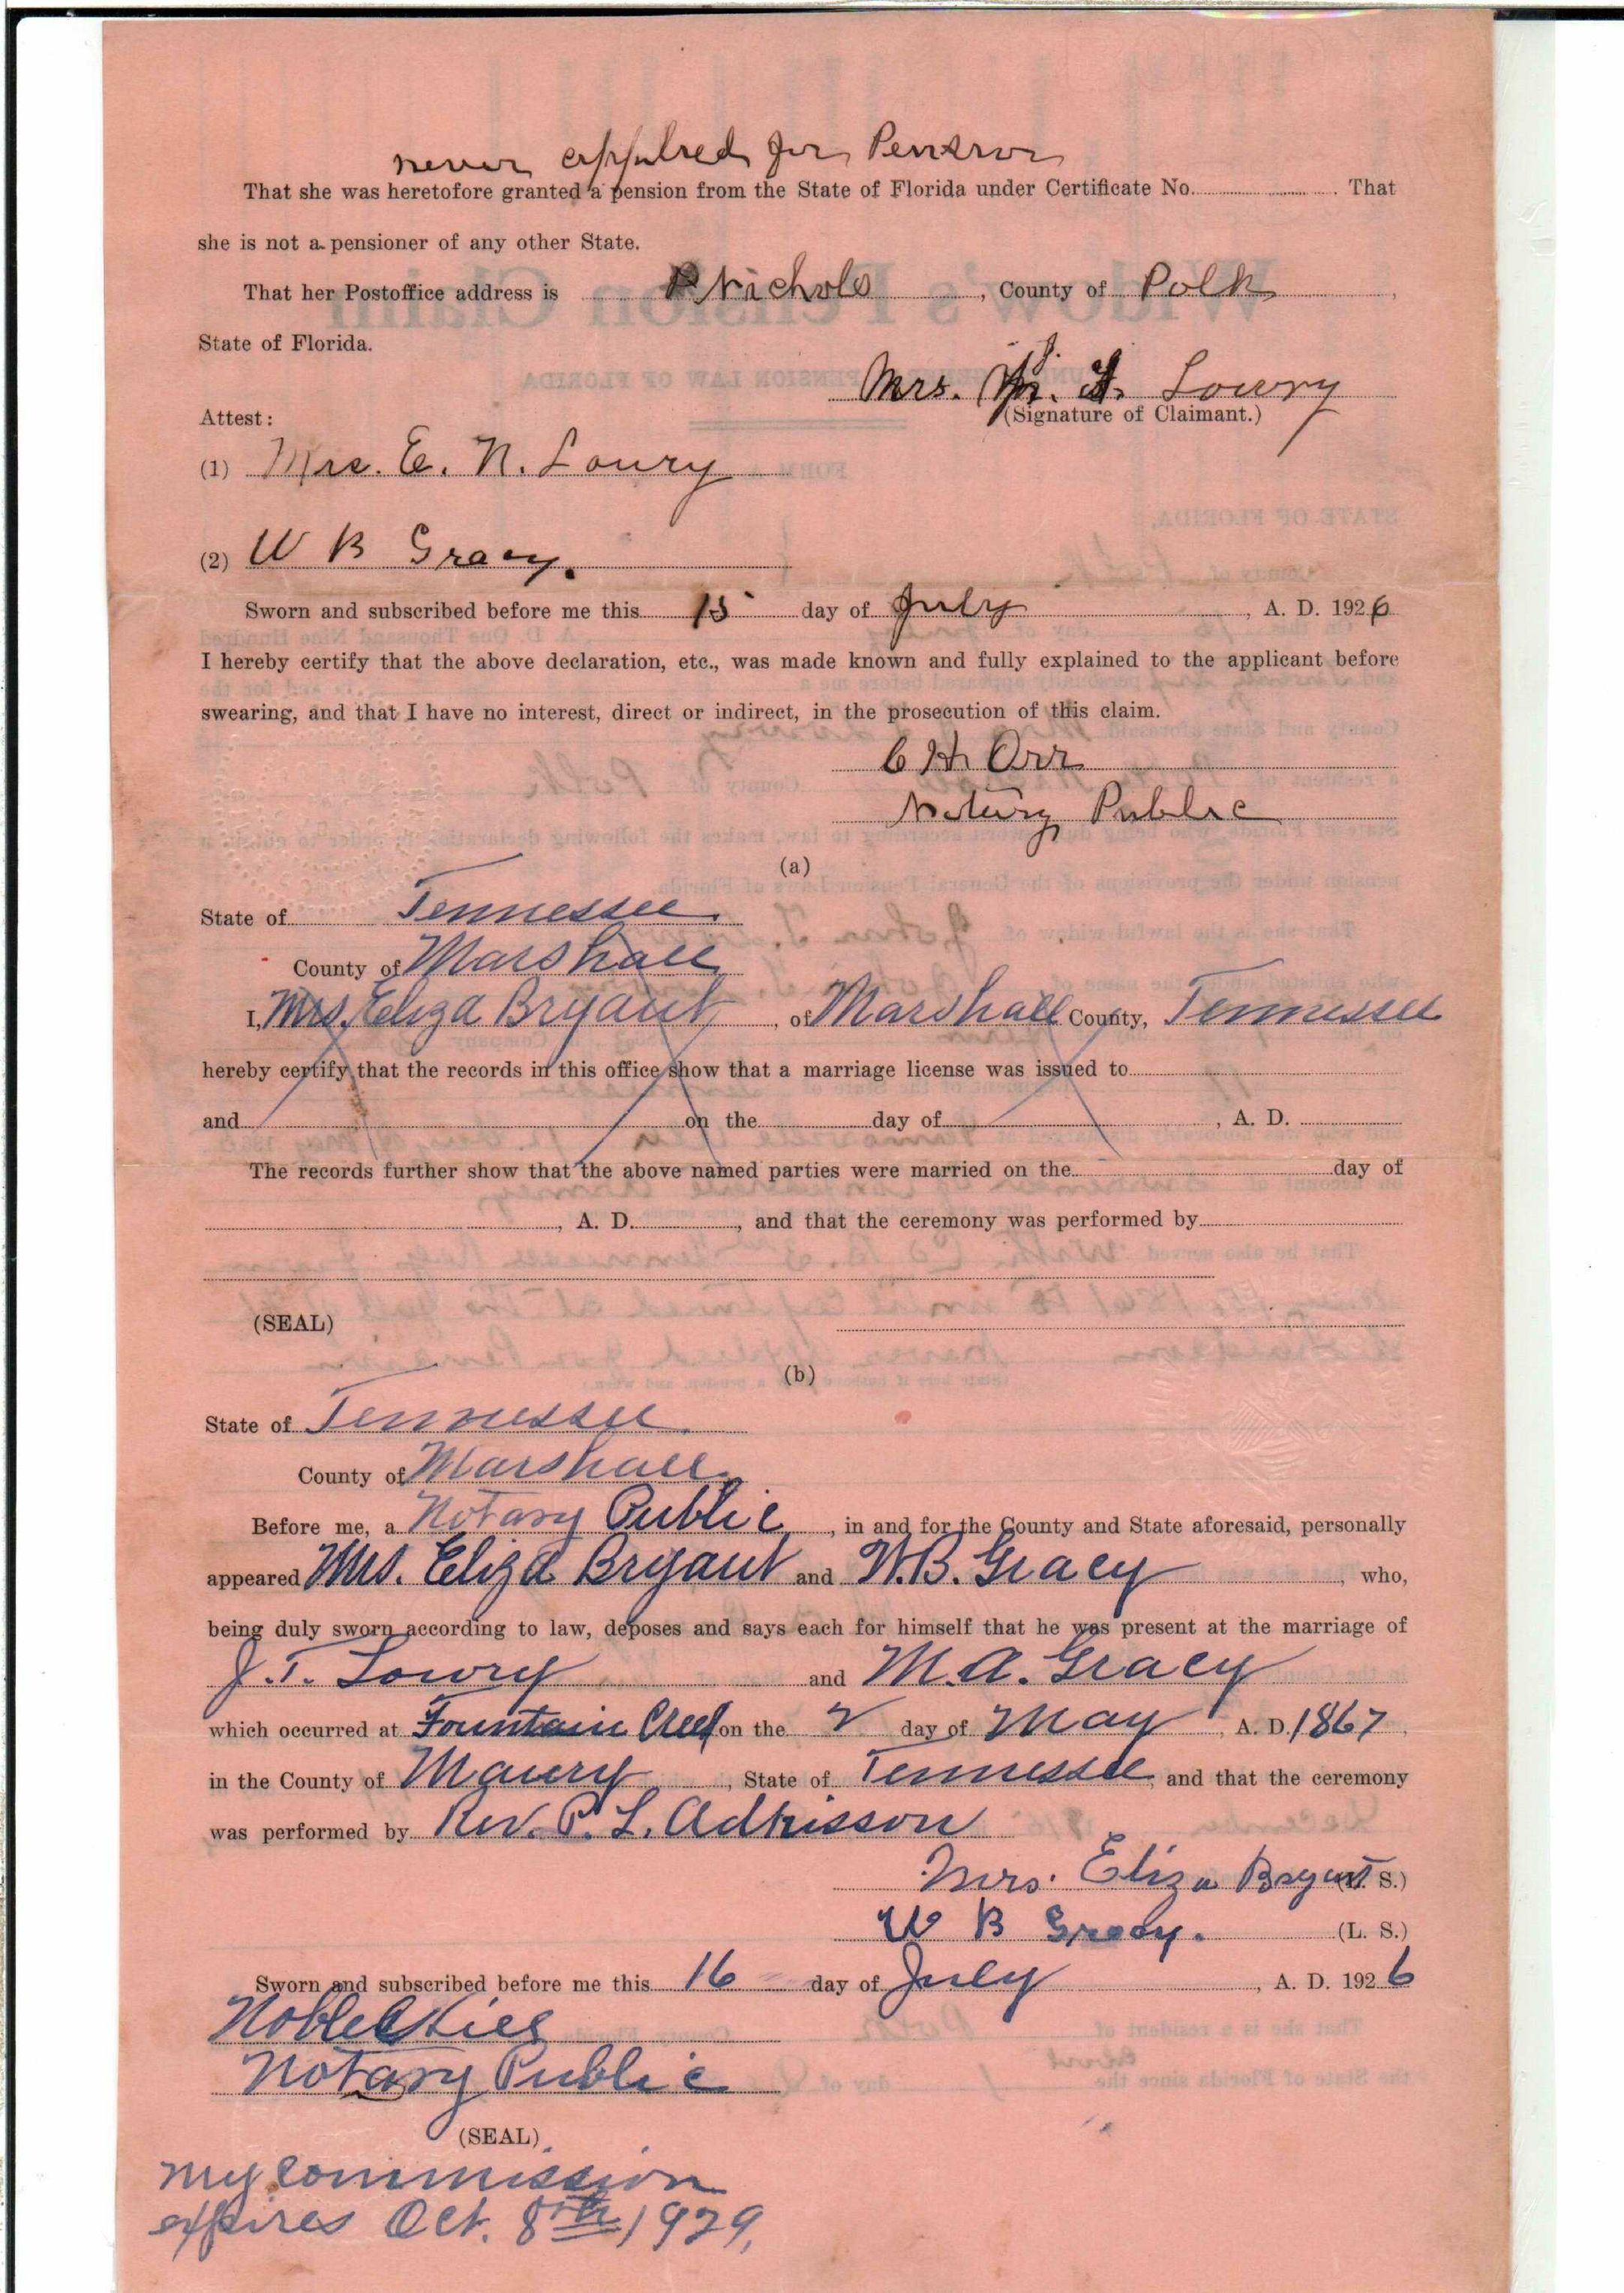 never applied for Pension
That she was heretofore granted a pension from the State of Florida under Certificate No. . That
she is not a pensioner of any other State.
That her Postoffice address is Nichols, County of Polk,
State of Florida.
Mrs. Lowry
(Signature of Claimant.)
Attest:
(1) Mrs. E. N. Lowry
(2) W B Gracy.
Sworn and subscribed before me this 15 day of July, A. D. 1926
I hereby certify that the above declaration, etc., was made known and fully explained to the applicant before
swearing, and that I have no interest, direct or indirect, in the prosecution of this claim.
C H Orr
Notary Public
(a)
State of Tennessee.
County of Marshall
I, Mrs. Eliza Bryant, of Marshall County, Tennessee
hereby certify that the records in this office show that a marriage license was issued to
and on the day of , A. D.
The records further show that the above named parties were married on the day of
, A. D. , and that the ceremony was performed by
(SEAL)
(b)
State of Tennessee
County of Marshall.
Before me, a Notary Public, in and for the County and State aforesaid, personally
appeared Mrs. Eliza Bryant and W.B. Gracy, who,
being duly sworn according to law, deposes and says each for himself that he was present at the marriage of
J. T. Lowry and M. A. Gracy
which occurred at Fountain Creek on the 2 day of May, A. D. 1867,
in the County of Maury, State of Tennessee, and that the ceremony
was performed by Rev. P. L. Adkisson
Mrs. Eliza Bryant (L. S.)
W B Gracy. (L. S.)
Sworn and subscribed before me this 16 day of July, A. D. 1926
Noble
Notary Public
(SEAL)
My commission
expires Oct. 8th 1929,